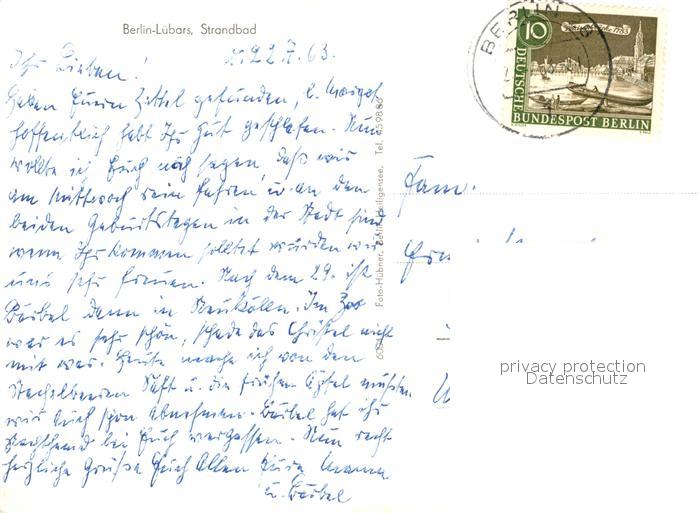 Berlin-Lübars, Strandbad
22.7.63.
Ihr Lieben!
haben Euern Zettel gefunden,
hoffentlich habt Ihr gut geschlafen. Nun
wollte ich Euch noch sagen, daß wir
am Mittwoch rein fahren u. an den
beiden Geburtstagen in der Stadt sind
wenn Ihr kommen solltet würden wir
uns sehr freuen. Nach dem 29. ist
Bärbel dann in Neukölln. Im Zoo
war es sehr schön, schade das Christel nicht
mit war. Heute mache ich von den
Stachelbeeren Saft u. die frühen Äpfel mußten
wir auch schon abnehmen. Bärbel hat ihr
Nachthemd bei Euch vergessen. Nun recht
herzliche Grüße Euch Allen Eure Mama
u. Bärbel
Foto-Hübner, Berlin-Heiligensee, Tel.
BERLIN
10
1783
DEUTSCHE
BUNDESPOST BERLIN
Fam.
privacy protection
Datenschutz